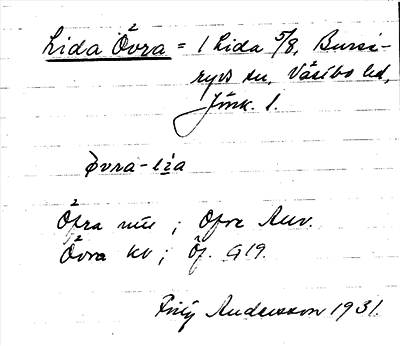 Lida Övra = 1 Lida 5/8, Burse-
ryds sn, Västbo hd,
Jönk. l.
Övra-lia
Öfra mtl ; Öfre Anv.
Övra kv ; Öf. G19.
Andersson 1931.